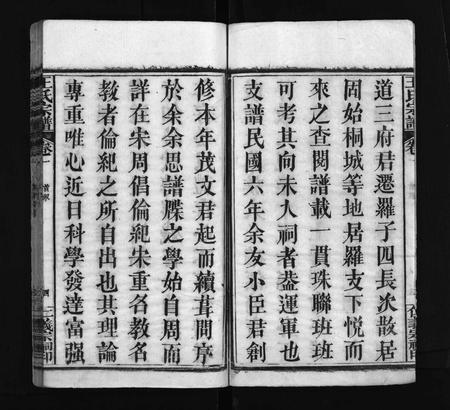 道三府君遷羅子四長次散居
固始桐城等地居羅支下悅而
來之查閱譜載一貫珠聯班班
可考其向未入祠者蓋運軍也
支譜民國六年余友小臣君創
修本年茂文君起而續葺問序
於余余思譜牒之學始自周而
詳在宋周倡倫紀宋重名教名
教者倫紀之所自出也其理論
專重唯心近日科學發達富強
王氏宗譜
卷